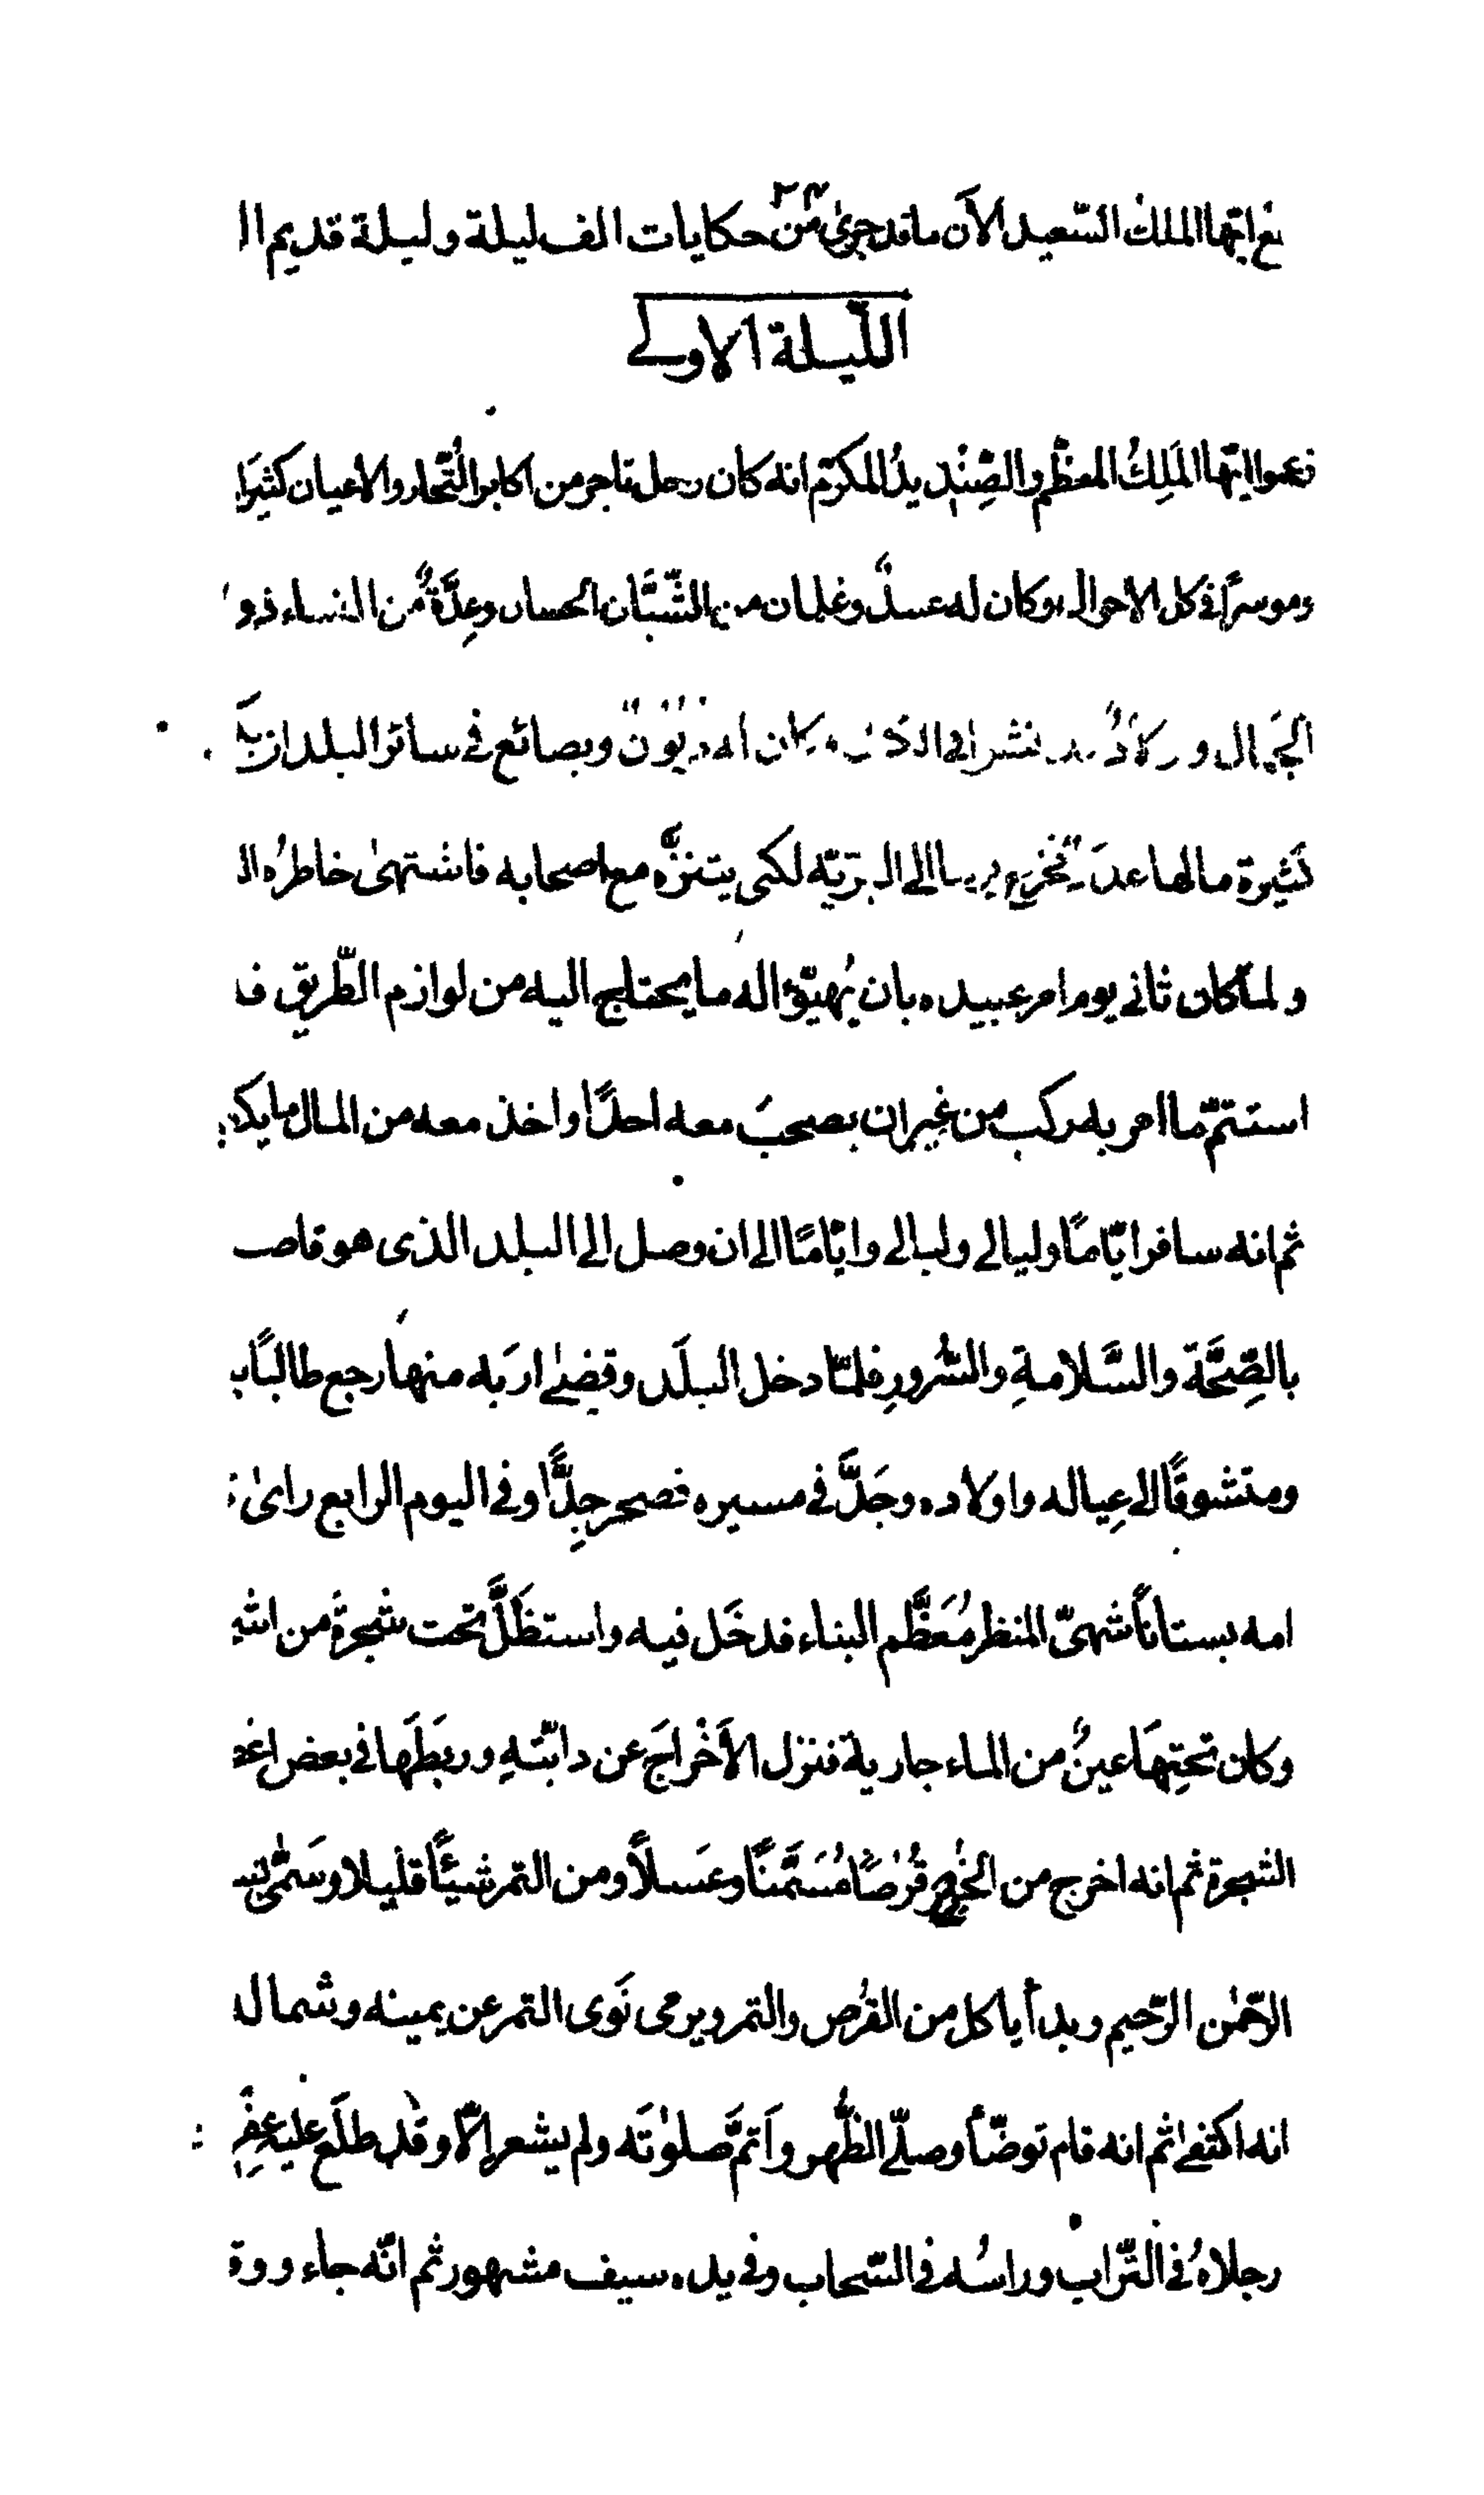 ايها الملك السعيد الآن ما قد جرى من حكايات الف ليلة وليلة قديم ا
الليلة الاولى
زعموا ايها الملِكُ المعظم والصِنْديدُ المكرّم انه كان رجل تاجر من اكابر التُّجار والاعيان كثير
وموسرًا فى كل الاحوال وكان له عبيدٌ وغلمان من الشّبَّان الحسان وعِدَّةٌ من النساء ذو
الجمال و وكان له ديُوُنٌ وبضائع فى سائر البلدان
كثيرة ما لها عدد فخرج الى البريّه لكى يتنزّه مع اصحابه فاشتهى خاطرُه ال
ولما كان ثانى يوم امر عبيده بان يُهيّؤا له ما يحتاج اليه من لوازم الطّريق ف
استتمّ ما امر به ركب من غير ان يصحبَ معه احدًا واخذ معه من المال ما يك
ثم انه سافر ايّامًا وليالى وليالى وايّامًا الى ان وصل الى البلد الذى هو قاص
بالصِّحَّة والسَّلامةِ والسُّرورِ فلمّا دخل البلَد وقضىٰ اربَه منها رجع طالبًا ب
ومتشوقًا الى عِياله واولاده وجَدَّ فى مسيره جِدًّا وفى اليوم الرابع راىٰ
امه بستانًا شهىّ المنظر مُعَظَّم البناء فدخَل فيه واستظَلَّ تحت شجرةٌ من اش
وكان تحتِهَا عينٌ من الماء جارية فنزل الاَخْراجَ عن دابّتهِ وربَطَها فى بعض اغ
الشجرة ثم انه اخرج من الخُرج قُرْصًا مُسَمَّنًا وعَسلاً ومن التمر شيئًا قليلا وسَمّٰى
الرّحمٰن الرّحيم وبدأ ياكل من القرُص والتمر ويرمى نَوى التمر عن يمينه وشمال
انه اكتفىٰ ثم انه قام توضّأ وصلّى الظُّهر واَتمَّ صلوٰتَه ولم يشعر الّا وقد طلَع عليه عفر
رجلاهُ فى التّراب وراسُه فى السّحاب وفى يده سيف مشهور ثم انّه جاء ودة